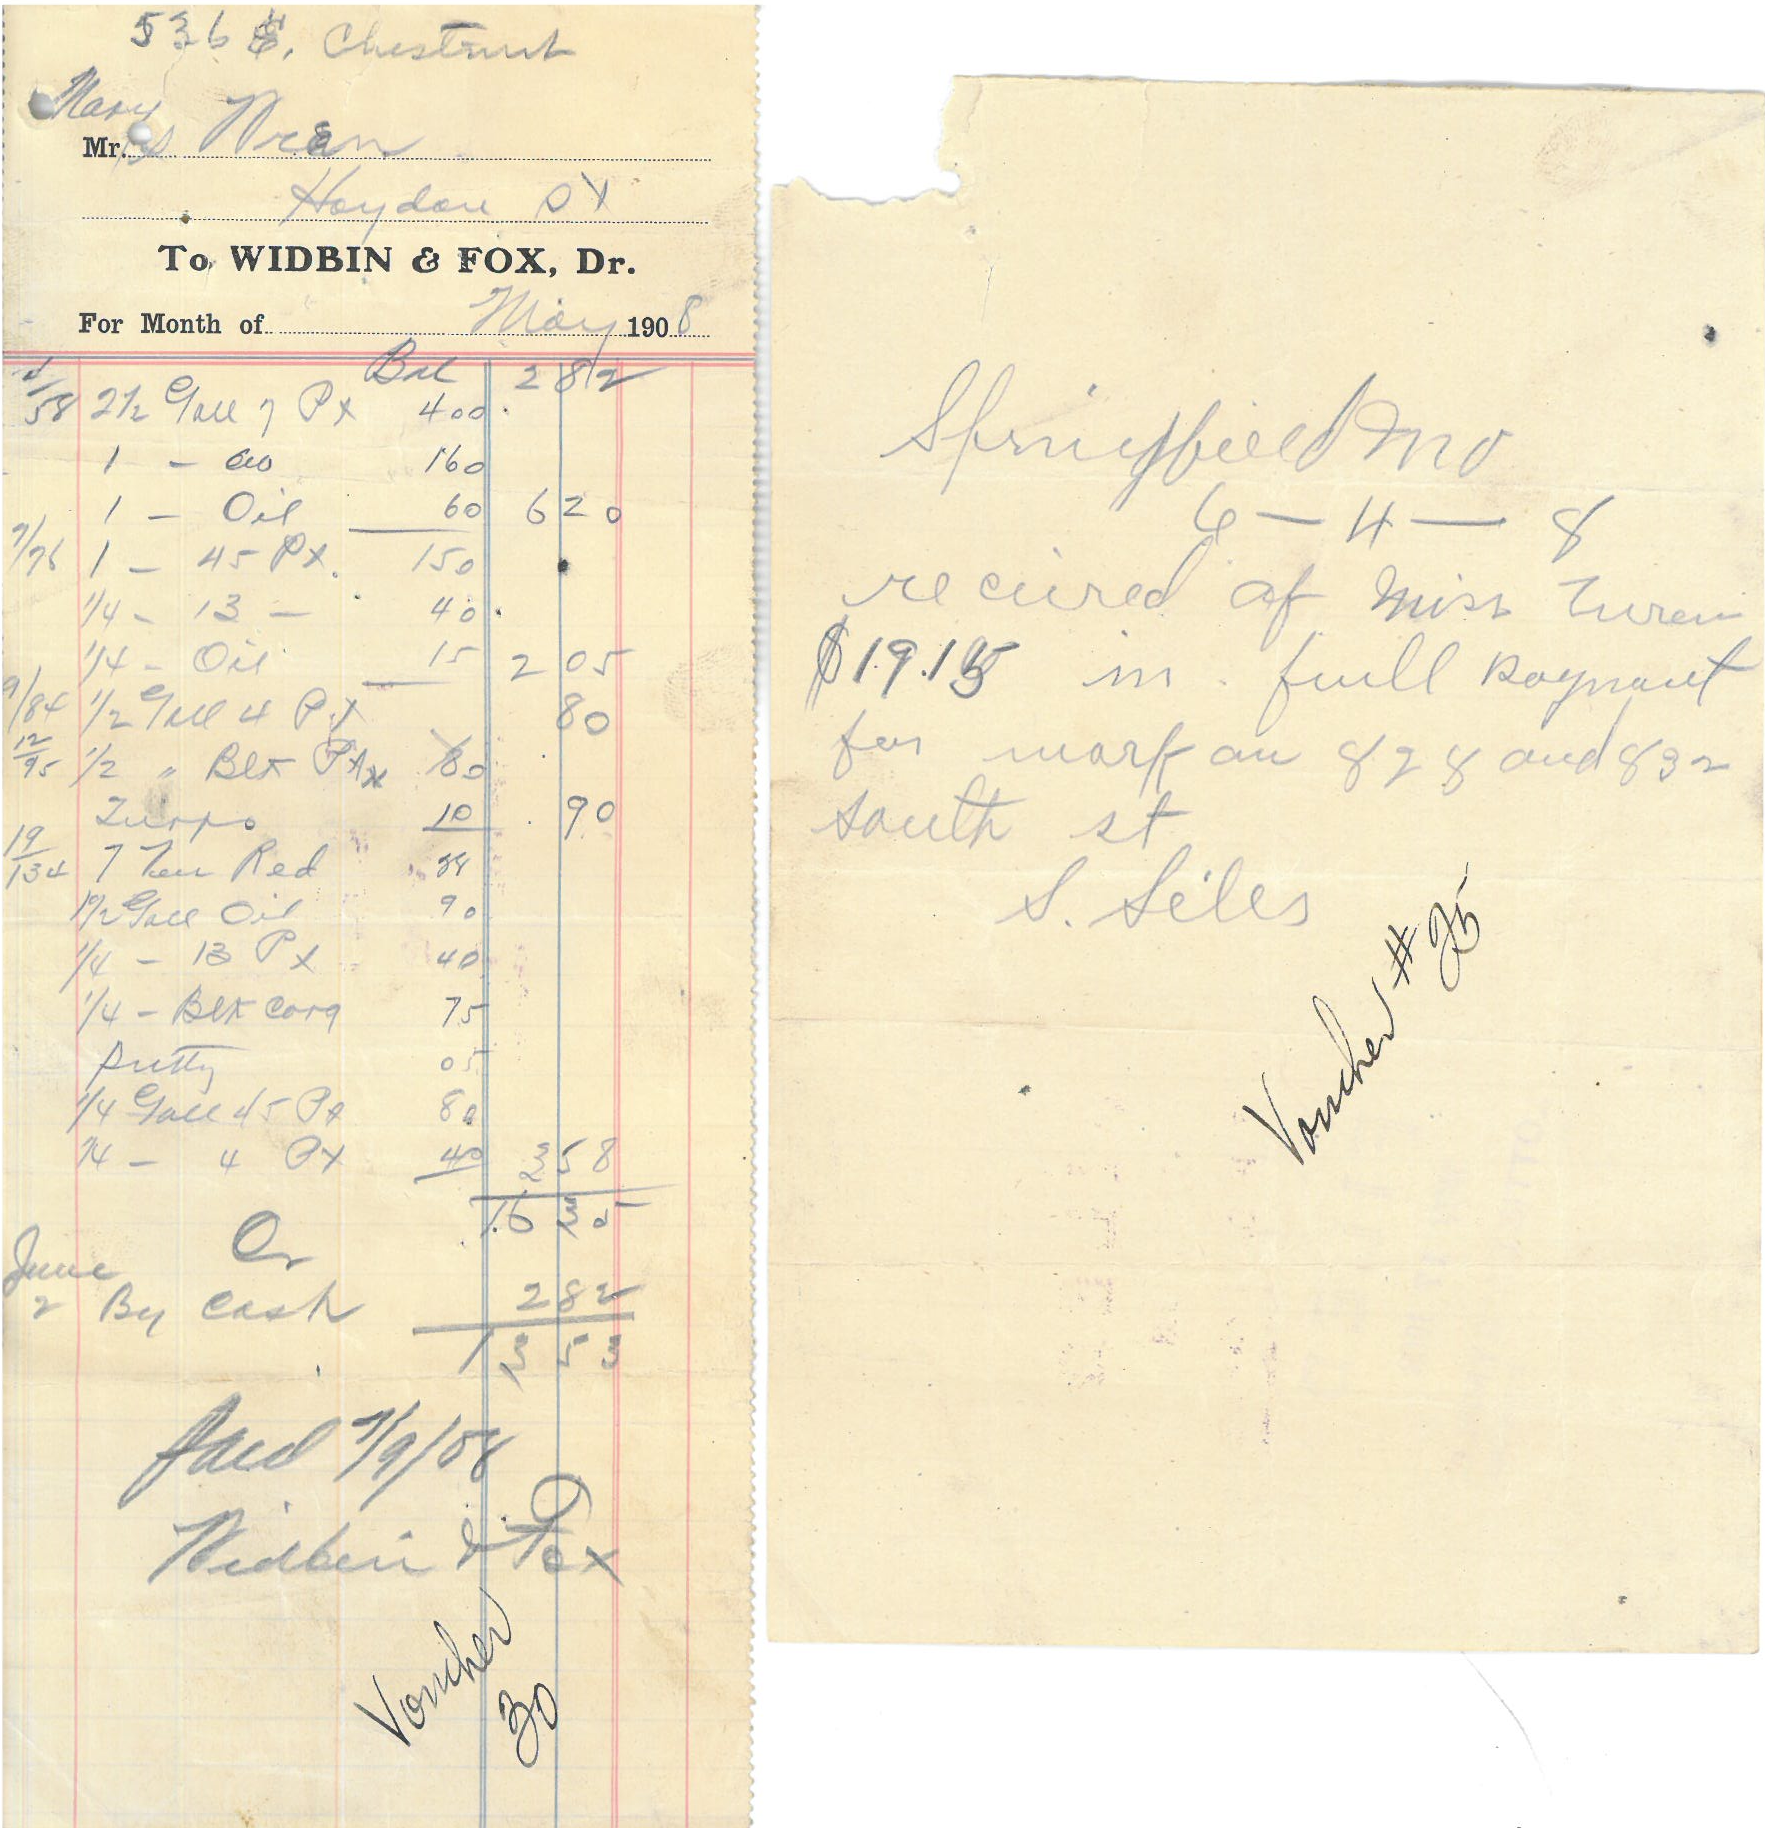 536 E. Chestnut
Mary
Mrs Wren
Haydon
To WIDBIN & FOX, Dr.
For Month of May 1908
Bal 2 82
2½ Gall 7 Px 400
1 - do 160
1 - Oil 60 6 20
7/76 1 - 45 Px. 150
1/4 - 13 - 40
1/4 - Oil 15 2 05
9/84 1/2 Gall 4 Px 80
12/95 1/2 " Blk 80
Turps 10 90
19/134 7 Red
1½ Gall Oil 90
1/4 - 13 Px 40
1/4 - Blk 75
putty 05
1/4 Gall 45 Px 80
1/4 - 4 Px 40 3 58
16 35
Cr
June
2 By Cash 2 82
13 53
Paid 7/9/08
Widbin & Fox
Voucher
30
Springfield Mo
6-4-8
recived of Miss
$19.15 in full
for work on 828 and 832
South st
S. Siles
Voucher # 25